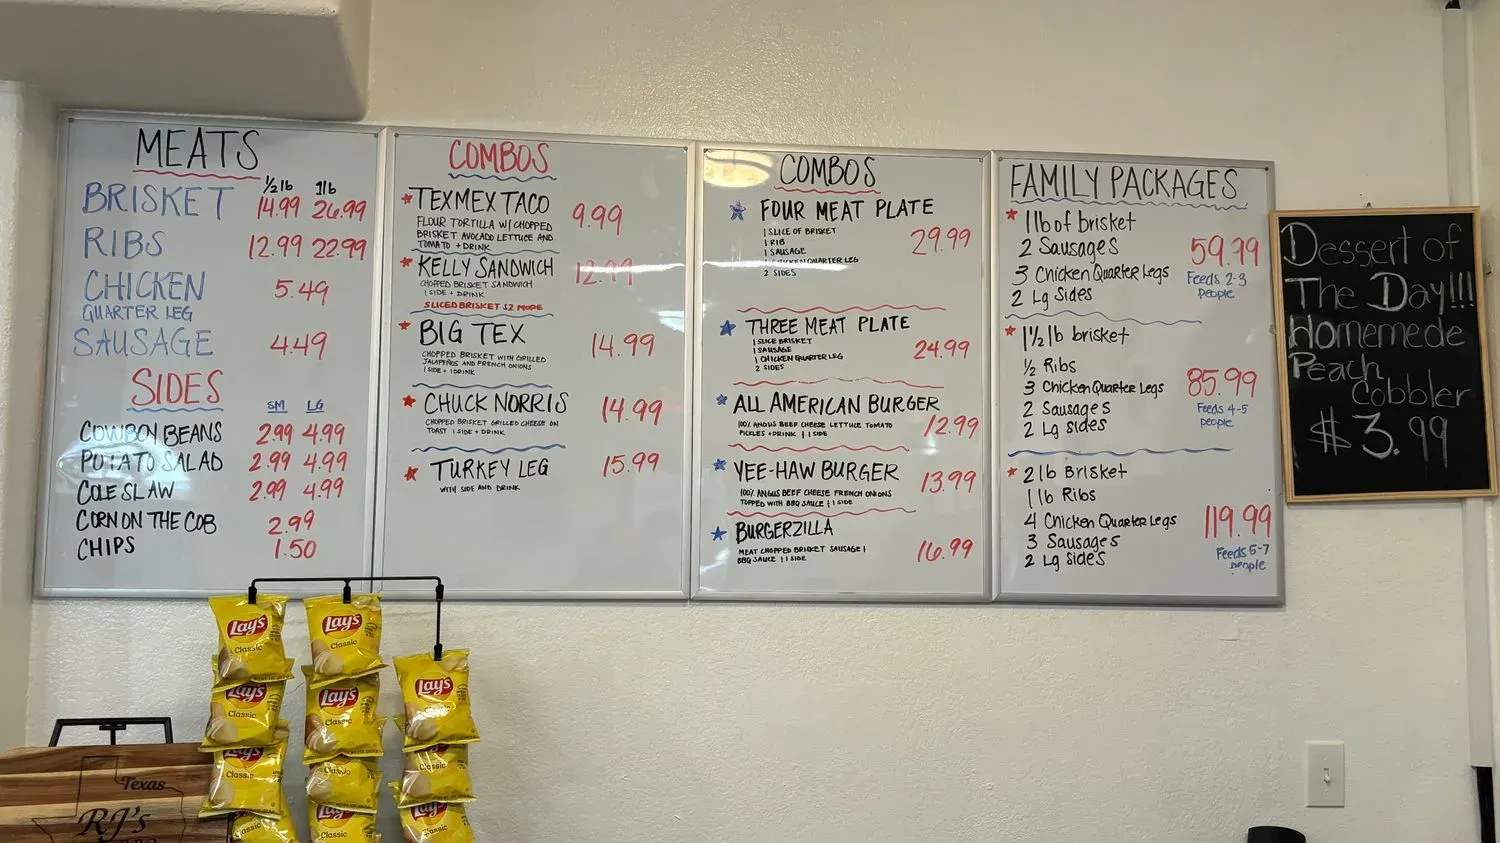 MEATS
½lb 1lb
BRISKET 14.99 26.99
RIBS 12.99 22.99
CHICKEN 5.49
QUARTER LEG
SAUSAGE 4.49
SIDES
SM LG
COWBOY BEANS 2.99 4.99
POTATO SALAD 2.99 4.99
COLE SLAW 2.99 4.99
CORN ON THE COB 2.99
CHIPS 1.50
COMBOS
TEXMEX TACO 9.99
FLOUR TORTILLA W/ CHOPPED
BRISKET AVOCADO LETTUCE AND
TOMATO + DRINK
KELLY SANDWICH 12.99
CHOPPED BRISKET SANDWICH
1 SIDE + DRINK
SLICED BRISKET $2 MORE
BIG TEX 14.99
CHOPPED BRISKET WITH GRILLED
JALAPEÑOS AND FRENCH ONIONS
1 SIDE + 1 DRINK
CHUCK NORRIS 14.99
CHOPPED BRISKET GRILLED CHEESE ON
TOAST 1 SIDE + DRINK
TURKEY LEG 15.99
WITH SIDE AND DRINK
COMBOS
FOUR MEAT PLATE 29.99
1 SLICE OF BRISKET
1 RIB
1 SAUSAGE
1 CHICKEN QUARTER LEG
2 SIDES
THREE MEAT PLATE 24.99
1 SLICE BRISKET
1 SAUSAGE
1 CHICKEN QUARTER LEG
2 SIDES
ALL AMERICAN BURGER 12.99
100% ANGUS BEEF CHEESE LETTUCE TOMATO
PICKLES + DRINK 1 SIDE
YEE-HAW BURGER 13.99
100% ANGUS BEEF CHEESE FRENCH ONIONS
TOPPED WITH BBQ SAUCE 1 SIDE
BURGERZILLA 16.99
MEAT CHOPPED BRISKET SAUSAGE
BBQ SAUCE 1 SIDE
FAMILY PACKAGES
1 lb of brisket
2 Sausages
3 Chicken Quarter Legs
2 Lg Sides
59.79
Feeds 2-3
people
1½ lb brisket
½ Ribs
3 Chicken Quarter Legs
2 Sausages
2 Lg sides
85.99
Feeds 4-5
people
2 lb Brisket
1 lb Ribs
4 Chicken Quarter Legs
3 Sausages
2 Lg sides
119.99
Feeds 5-7
people
Dessert of
The Day!!!
Homemede
Peach
Cobbler
$3.99
Lay's
Classic
Lay's
Classic
Lay's
Classic
Lay's
Classic
Lay's
Classic
Lay's
Classic
Classic
Classic
Lay's
Classic
Classic
Classic
Texas
RJ's